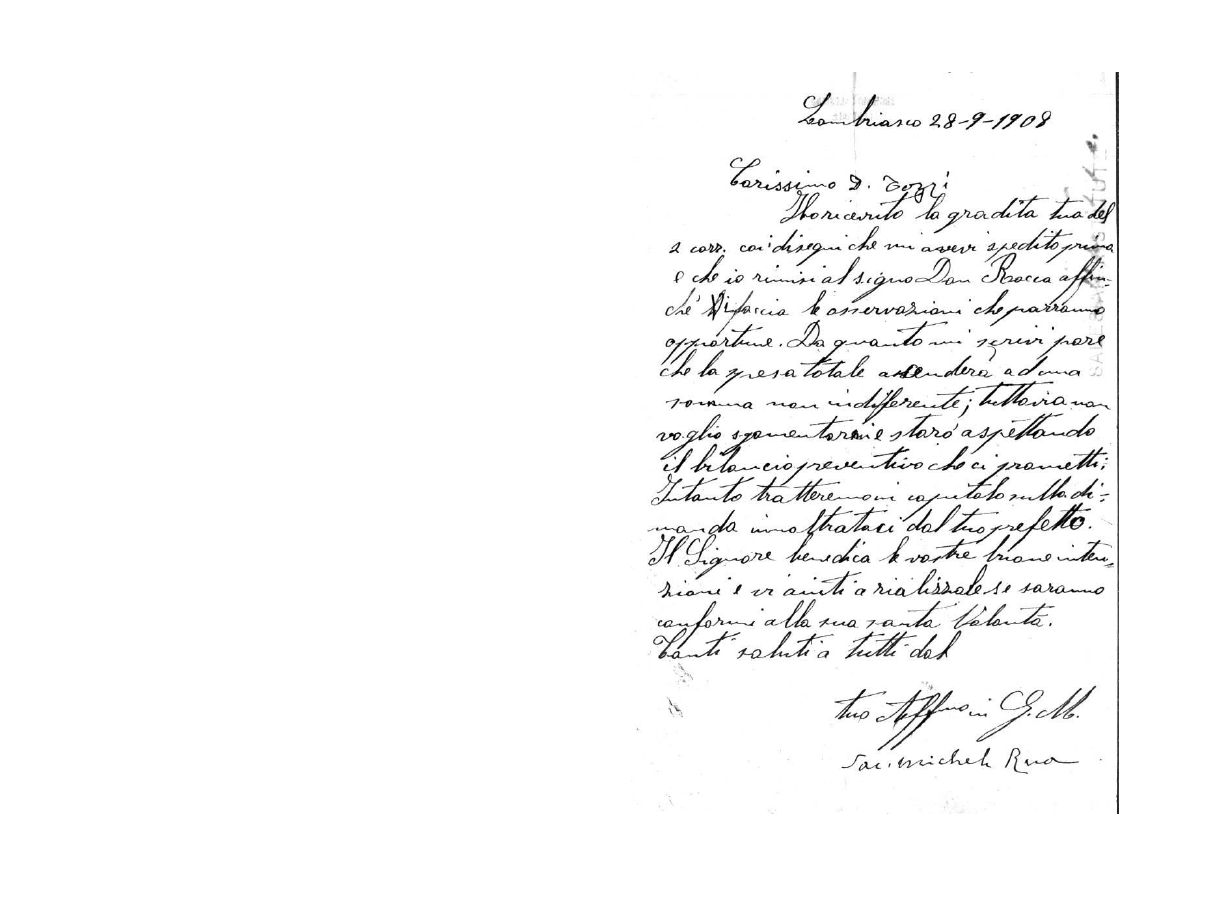 Lombriasco 28-9-1908
Carissimo D. Tozzi
Ho ricevuto la gradita tua del
2 corr. coi disegni che mi avevi spedito prima
e che io rimisi al signo Don Rocca affin-
chè vi faccia le osservazioni che parranno
opportune. Da quanto mi scrivi pare
che la spesa totale ascenderà ad una
somma non indifferente; tuttavia non
voglio sgomentarmi e starò aspettando
il bilancio preventivo che ci prometti;
Intanto tratteremo in capitolo sulla di-
manda innoltrataci dal tuo prefetto.
Il Signore benedica le vostre buone inten-
zioni e vi aiuti a rializzale se saranno
conformi alla sua santa Volontà.
Tanti saluti a tutti dal
tuo Affmo in G. M.
Sac. Michele Rua